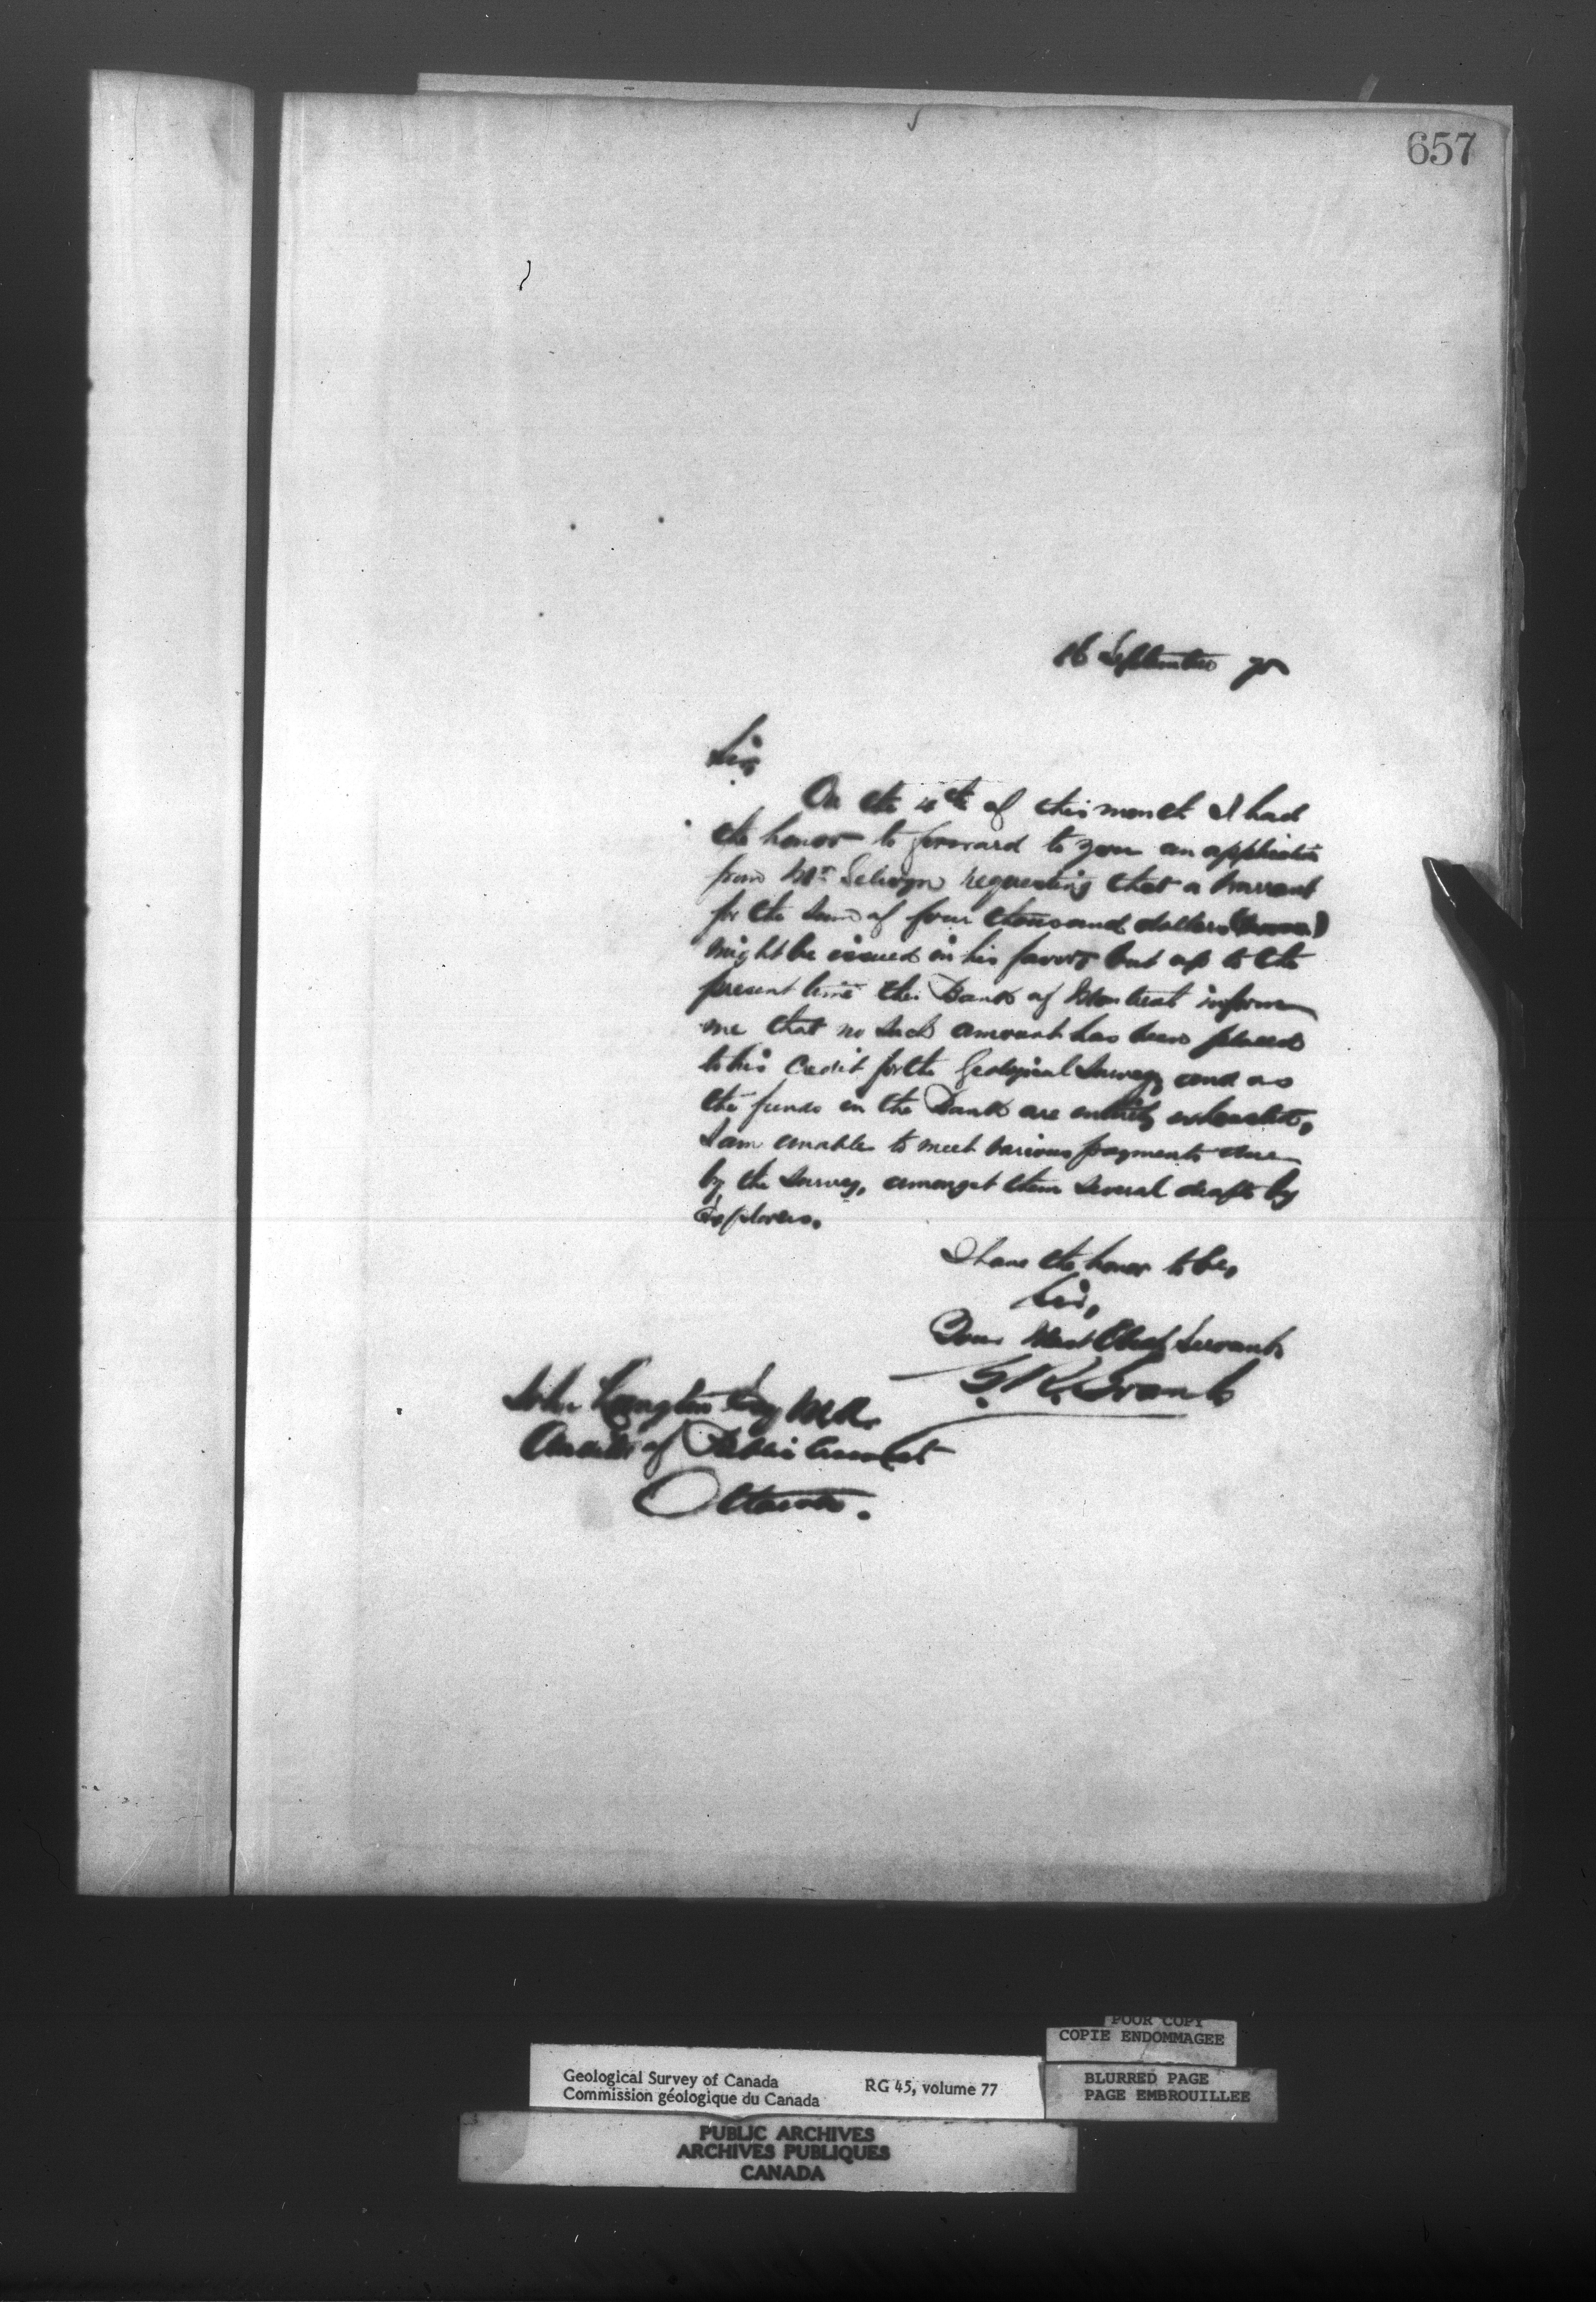 657
16 September 75
Sir,
On the 4th of this month I had
the honor to forward to you an application
from Mr Selwyn requesting that a Warrant
for the sum of four thousand dollars
might be issued in his favor but up to the
present time the Bank of Montreal inform
me that no such amount has been placed
to his Credit for the Geological Survey and as
the funds in the Bank are entirely exhausted,
I am unable to meet various payments due
by the Survey, amongst them several drafts by
Explorers.
I have the honor to be,
Sir,
Your Most Obedt Servant
G. R. Grant
John Langton Esq M.A.
Auditor of Public Accounts
Ottawa.
POOR COPY
COPIE ENDOMMAGEE
Geological Survey of Canada RG 45, volume 77
Commission géologique du Canada
BLURRED PAGE
PAGE EMBROUILLEE
PUBLIC ARCHIVES
ARCHIVES PUBLIQUES
CANADA